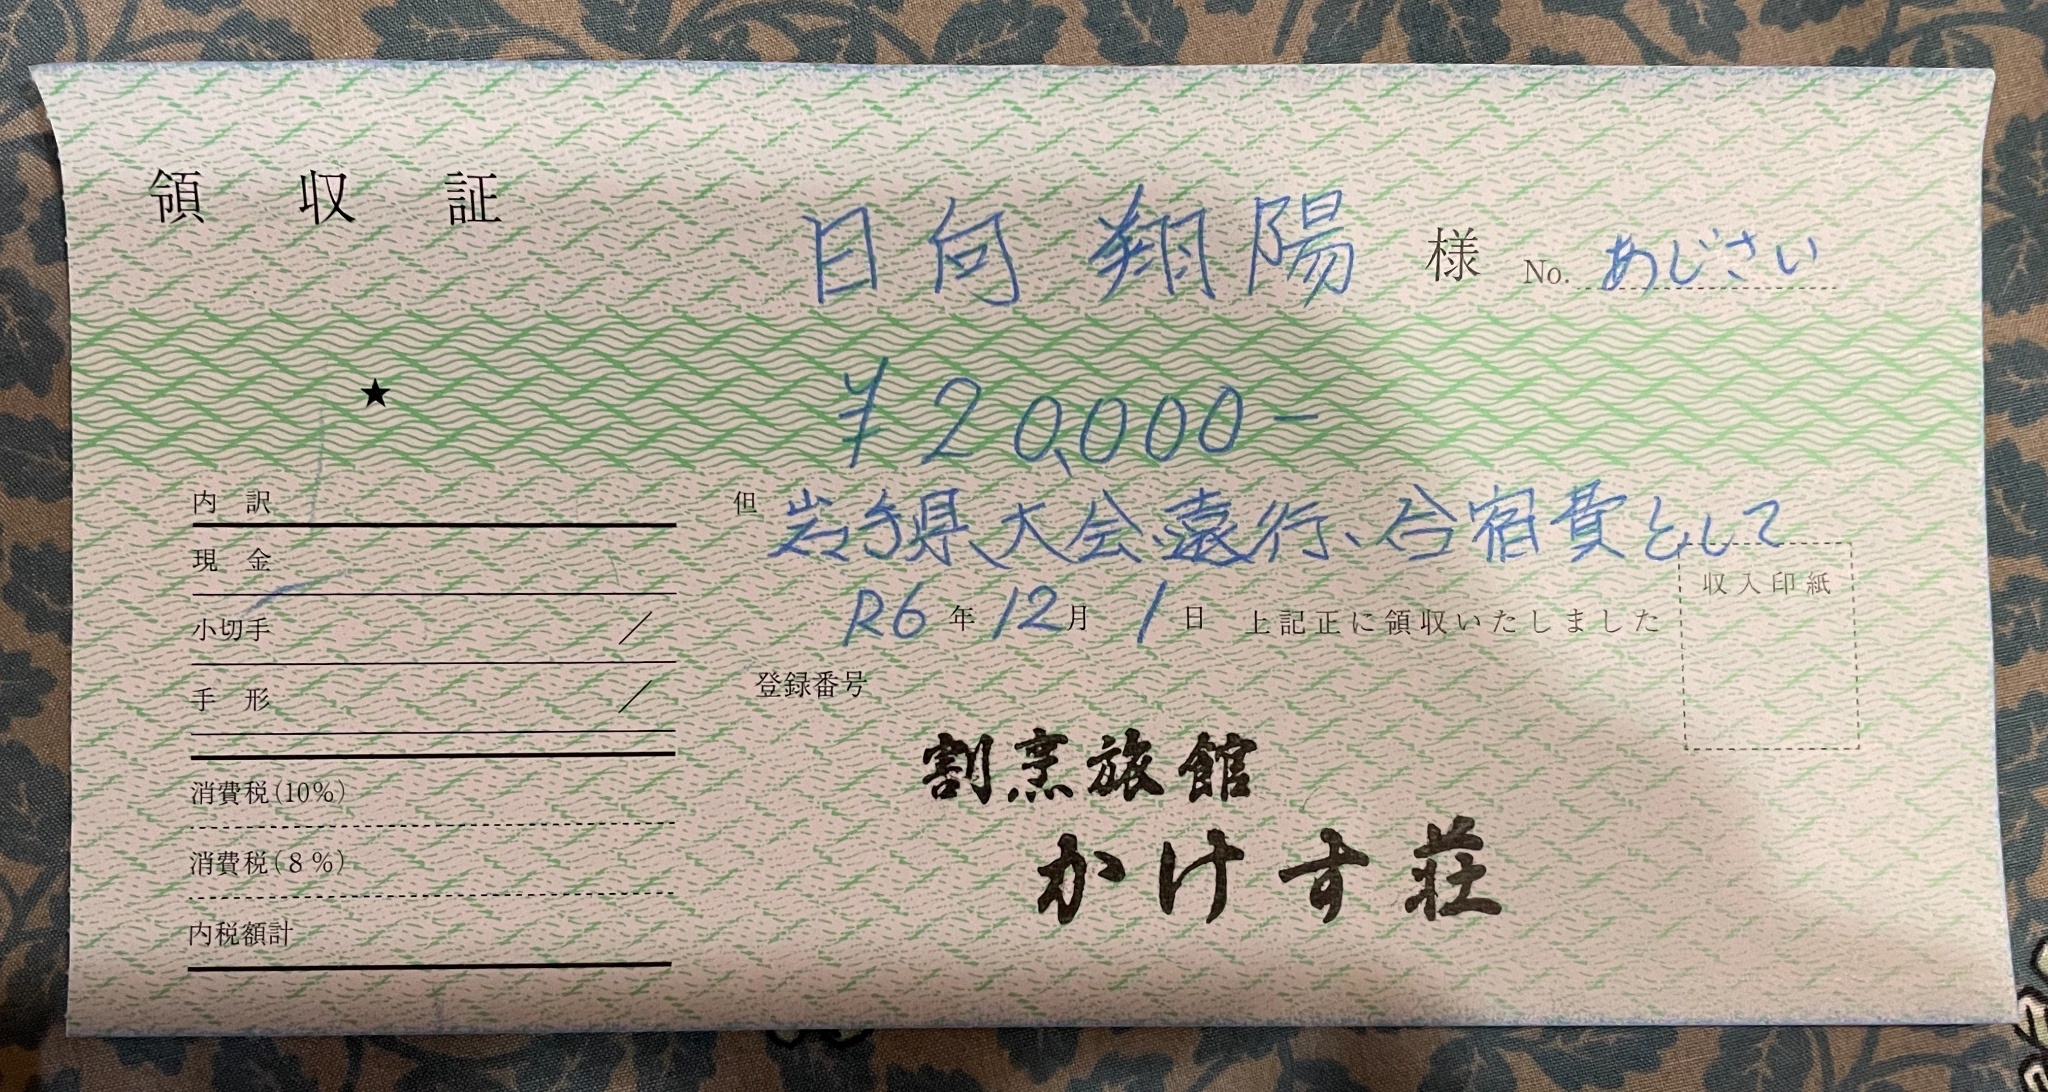 領収証
日向 翔陽 様 No. あじさい
★
¥20,000-
但 岩手県大会遠行、合宿費として
R6年12月1日 上記正に領収いたしました
収入印紙
登録番号
割烹旅館
かけす荘
内訳
現金
小切手 /
手形 /
消費税(10%)
消費税(8%)
内税額計